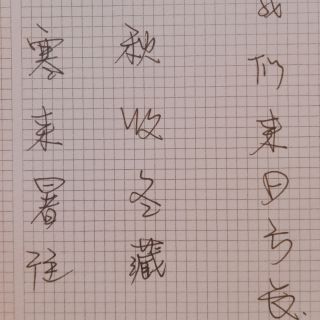 寒来暑往
秋收冬藏
我们来日方长.